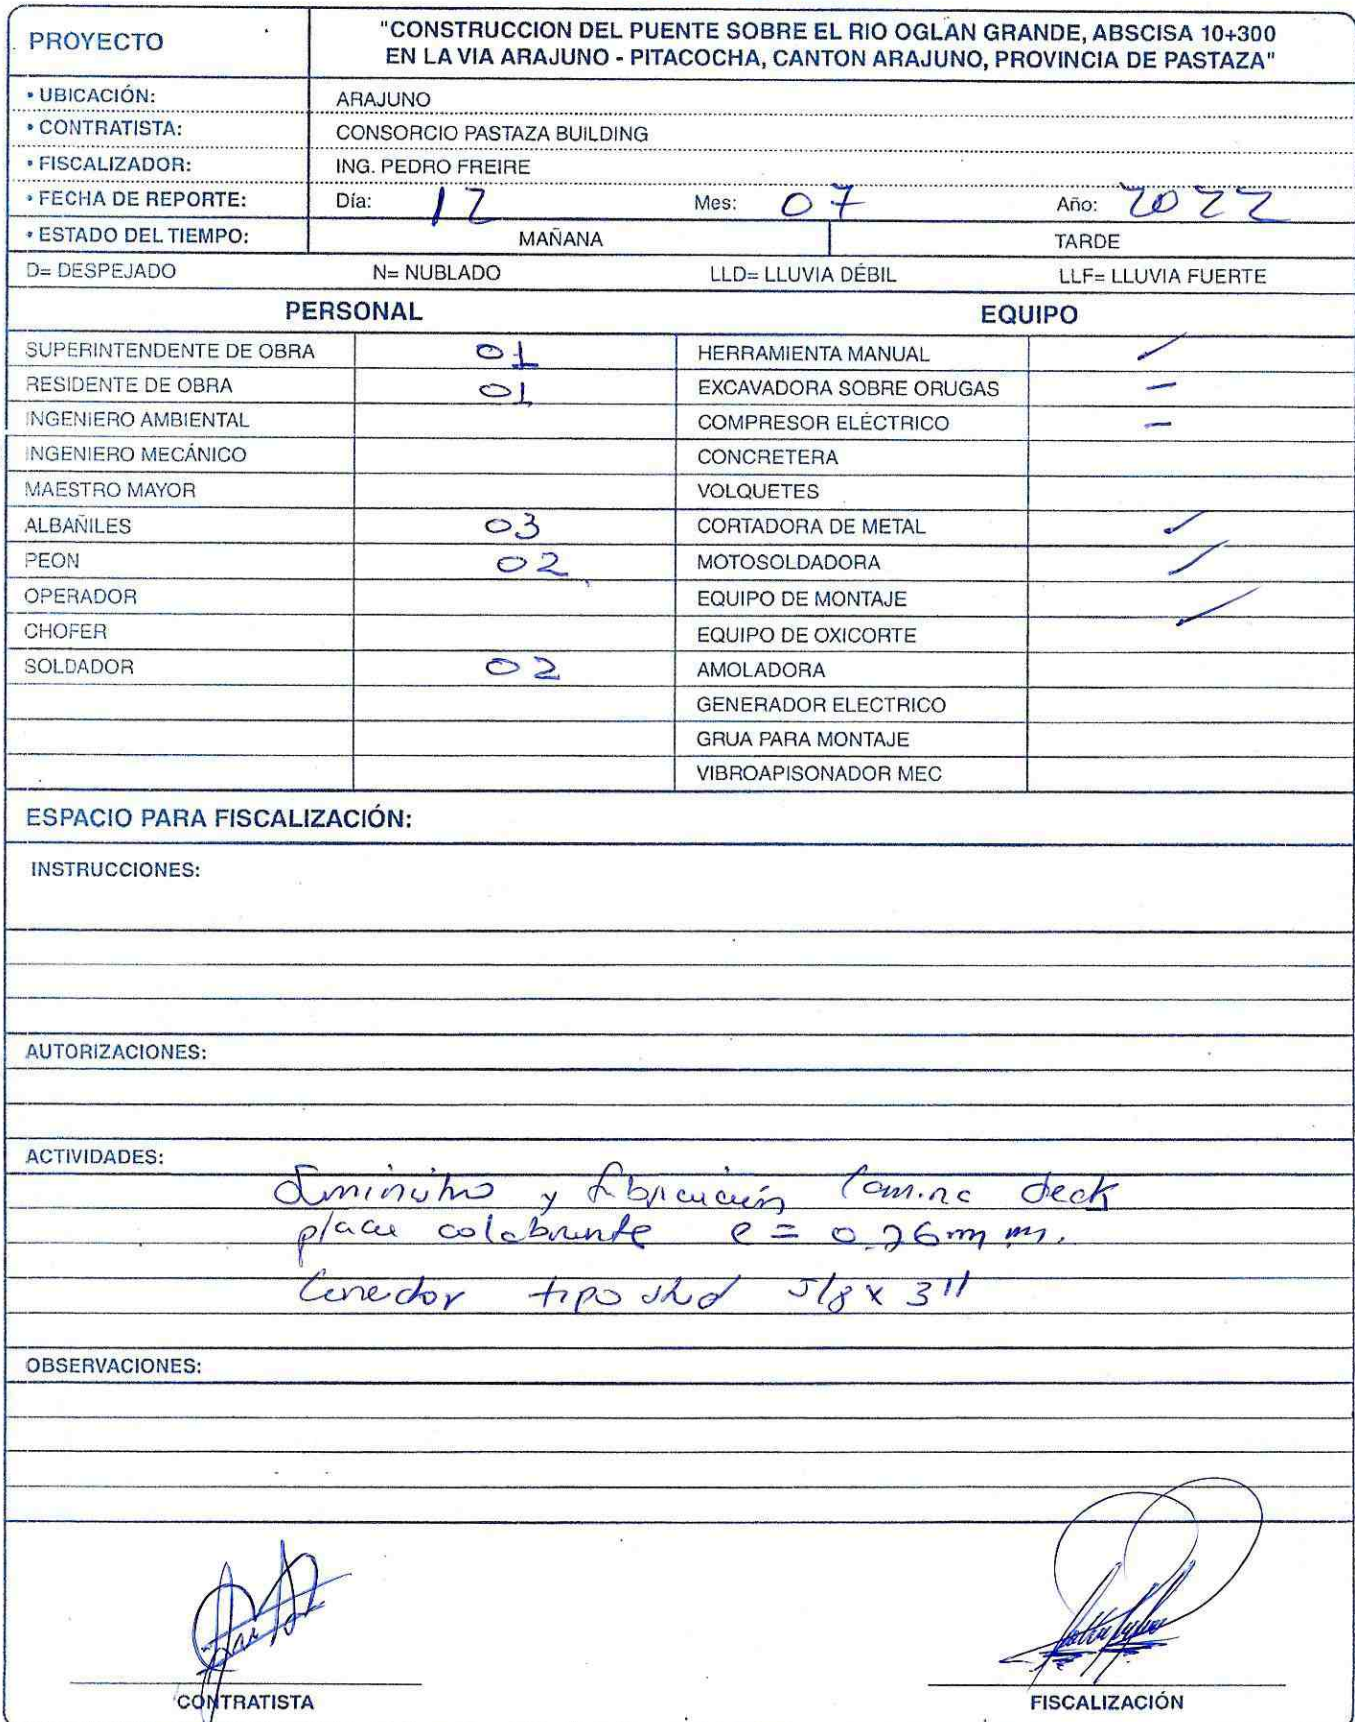 PROYECTO
"CONSTRUCCION DEL PUENTE SOBRE EL RIO OGLAN GRANDE, ABSCISA 10+300
EN LA VIA ARAJUNO - PITACOCHA, CANTON ARAJUNO, PROVINCIA DE PASTAZA"
• UBICACIÓN: ARAJUNO
• CONTRATISTA: CONSORCIO PASTAZA BUILDING
• FISCALIZADOR: ING. PEDRO FREIRE
• FECHA DE REPORTE: Día: 12 Mes: 07 Año: 2022
• ESTADO DEL TIEMPO: MAÑANA TARDE
D= DESPEJADO N= NUBLADO LLD= LLUVIA DÉBIL LLF= LLUVIA FUERTE
PERSONAL EQUIPO
SUPERINTENDENTE DE OBRA 01 HERRAMIENTA MANUAL ✓
RESIDENTE DE OBRA 01 EXCAVADORA SOBRE ORUGAS -
INGENIERO AMBIENTAL COMPRESOR ELÉCTRICO -
INGENIERO MECÁNICO CONCRETERA
MAESTRO MAYOR VOLQUETES
ALBAÑILES 03 CORTADORA DE METAL ✓
PEON 02 MOTOSOLDADORA ✓
OPERADOR EQUIPO DE MONTAJE ✓
CHOFER EQUIPO DE OXICORTE
SOLDADOR 02 AMOLADORA
GENERADOR ELECTRICO
GRUA PARA MONTAJE
VIBROAPISONADOR MEC
ESPACIO PARA FISCALIZACIÓN:
INSTRUCCIONES:
AUTORIZACIONES:
ACTIVIDADES:
Suministro y fabricación lamina deck
placa colaborante e = 0.76mm.
Conector tipo stud 5/8 x 3"
OBSERVACIONES:
CONTRATISTA FISCALIZACIÓN